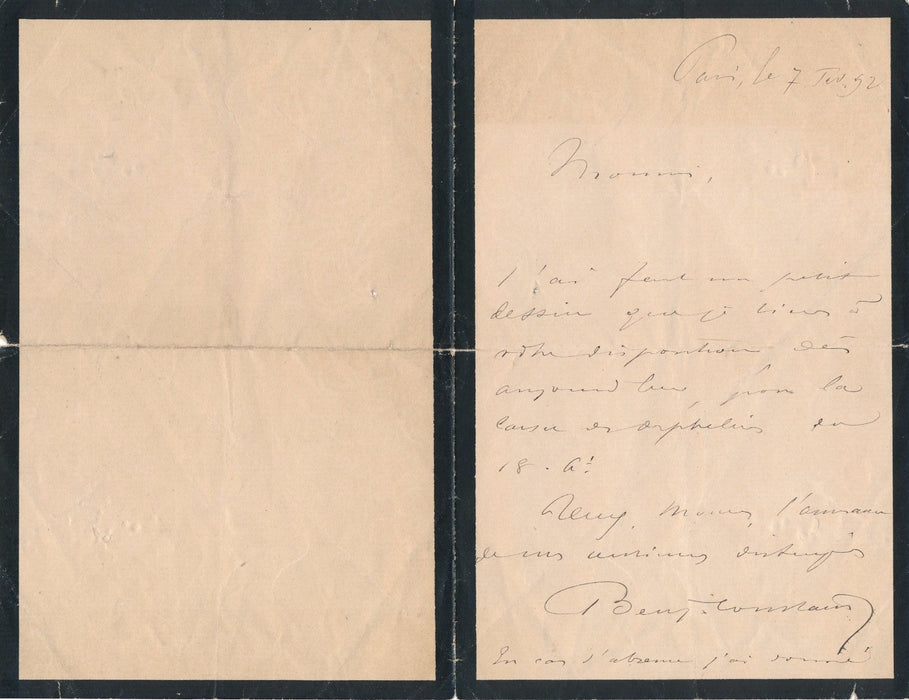 Paris, le 7 Fev. 92
Monsieur,
J'ai fait un petit
dessin que je tiens à
votre disposition dès
aujourd'hui, pour la
caisse des orphelins du
18. Art
Recevez, Monsieur, l'assurance
de mes sentiments distingués
Benj-Constant
En cas d'absence j'ai donné